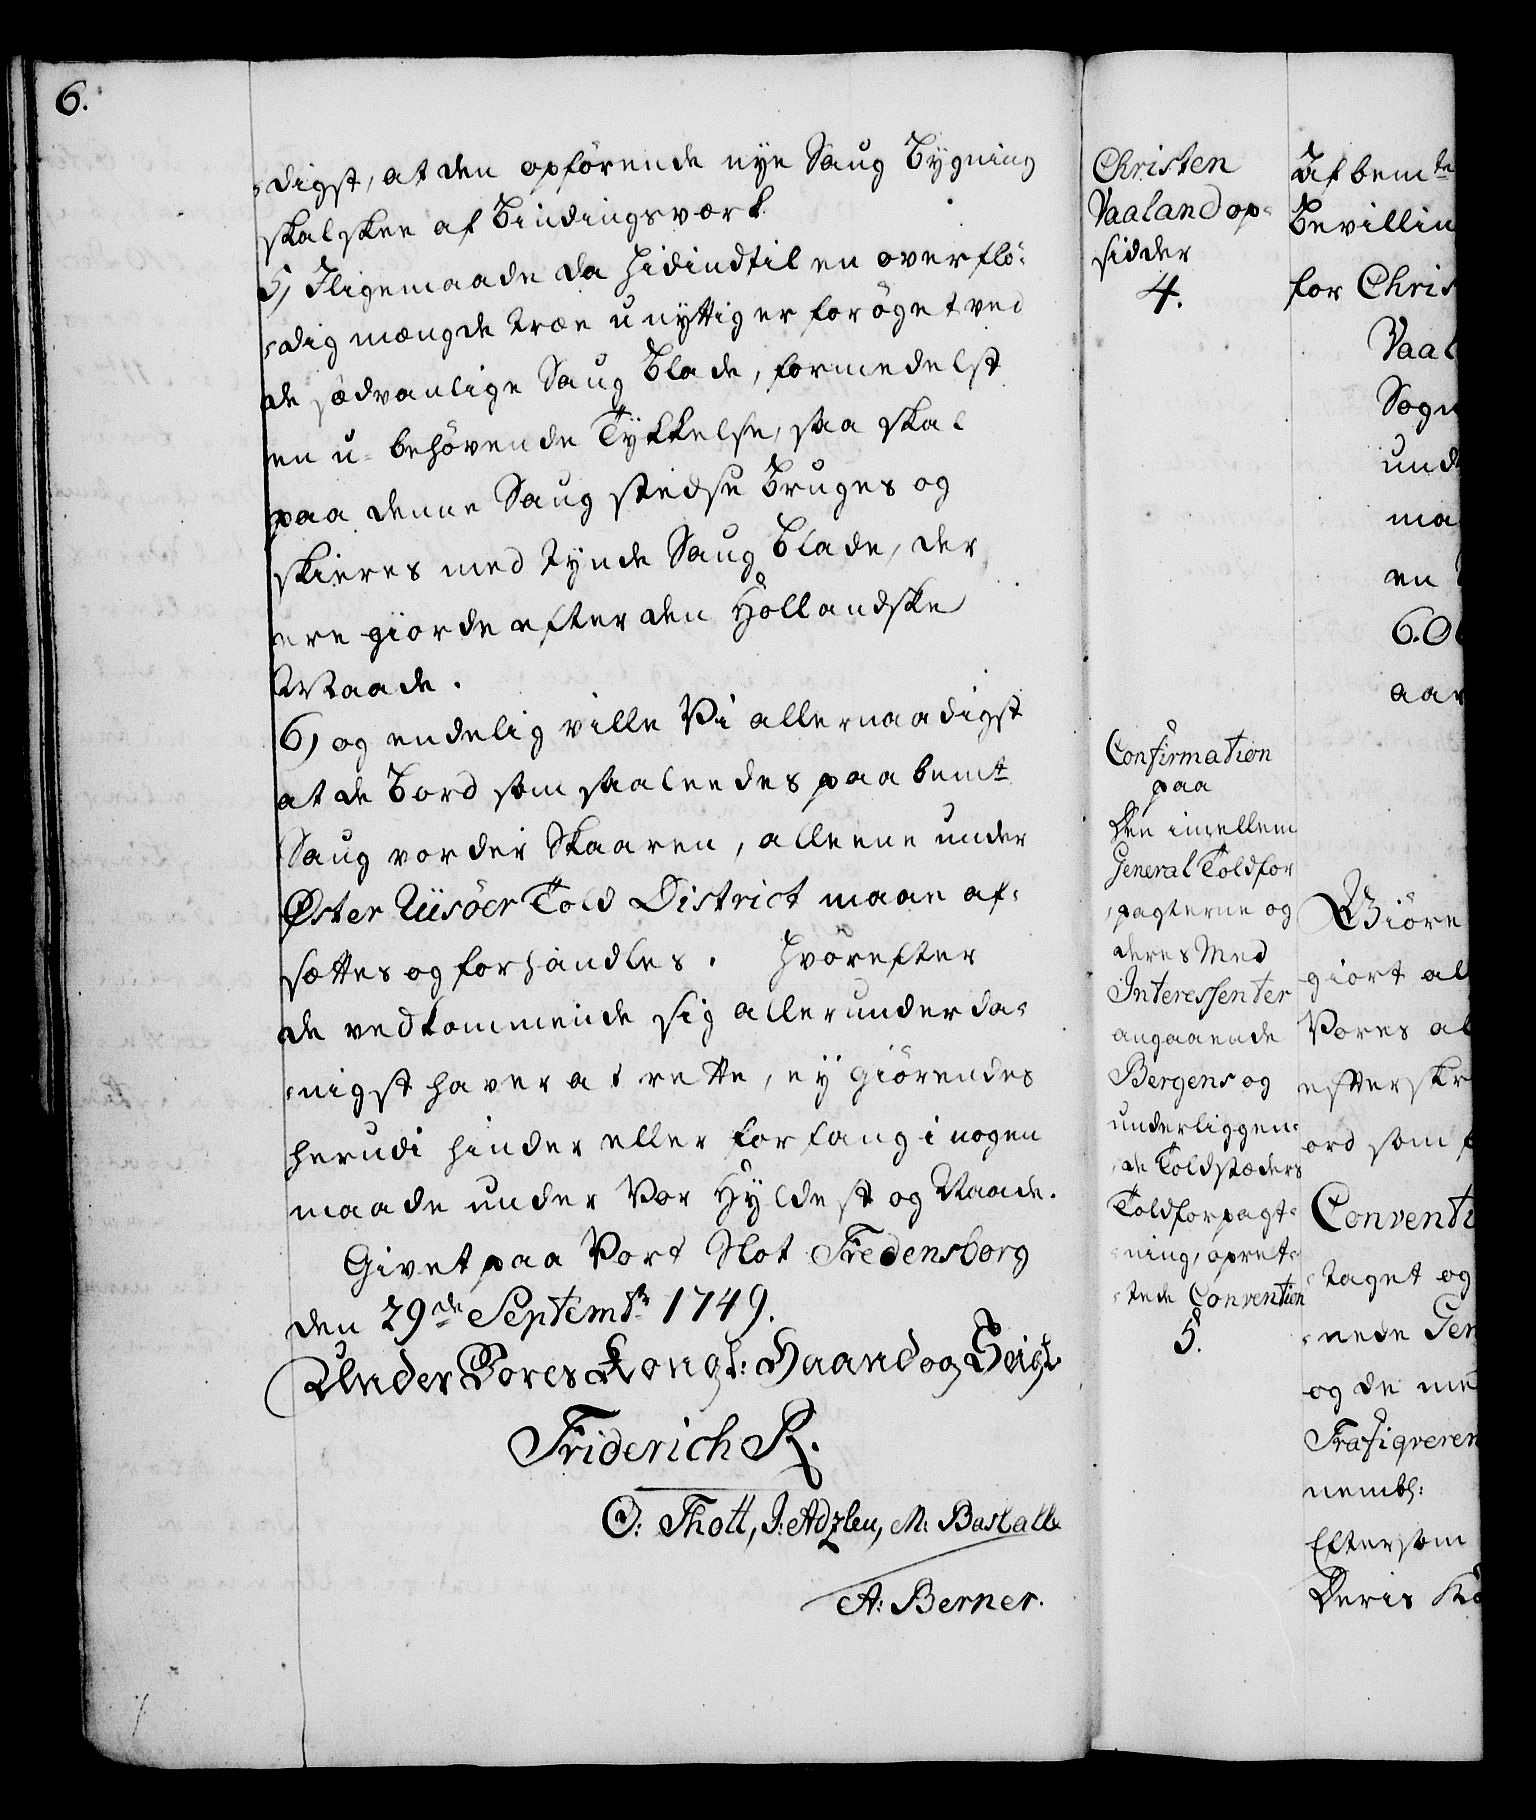 6.
-digst, at den opförende nye Saug Bygning
skal skee af Bindingsværk.
5) Iligemaade da hidindtil en overflö-
-dig mængde Træe unyttig er forøget ved
de sædvanlige Saug Blade, formedelst
en u-behövende Tykkelse, saa skal
paa denne Saug stedse Bruges og
skieres med tynde Saug Blade, der
ere giorde efter den Hollandske
Maade.
6) og endelig ville Vi allernaadigst
at de Bord som saaleedes paa bemte
Saug vorder Skaaren, alleene under
Øster Riisöer Told District maae af-
sættes og forhandles. Hvorefter
de vedkommende sig allerunderda-
-nigst haver at rette, ey giörendes
herudi hinder eller forfang i nogen
maade under Vor Hyldest og Naade.
Givet paa Vort Slot Fredensborg
den 29de Septembr 1749.
Under Vores Kongl: Haand og Seigl
Friderich R.
O: Thott, J: Adzlew, M: Bastall
A: Berner.
Christen
Vaaland op-
sidder
4.
Confirmation
paa
Den imellem
General Toldfor
-pagterne og
deres Med
Interessenter
angaaende
Bergens og
underliggen-
-de Toldstæders
Toldforpagt-
-ning, opret-
-tede Convention
5.
Af bemte
Bevillin
for Chris
Vaal
Sogn
und
ma
en
6.
aar
Giöre
giort al
Vores al
efterskr
ord som f
Conventi
-taget og
-nede Gen
og de me
Trafiqveren
nembl:
Eftersom
Deris Kö